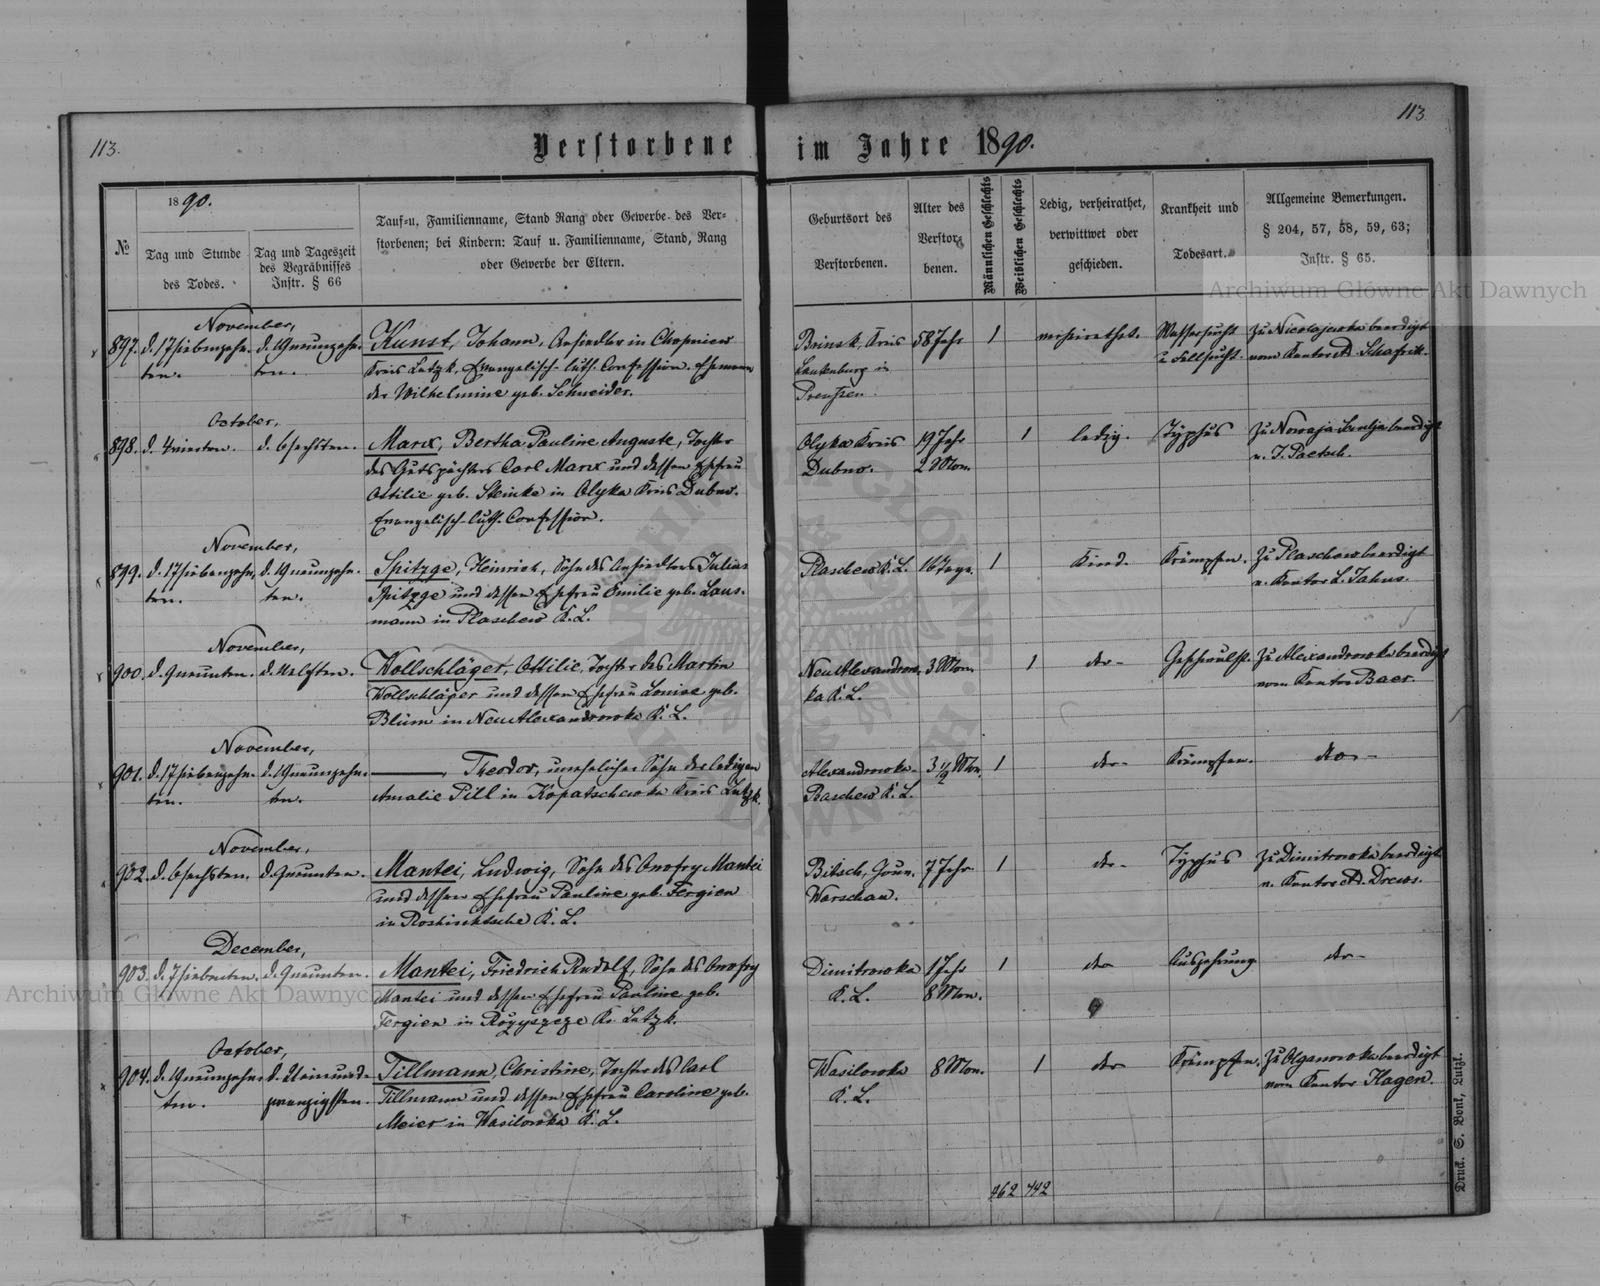 113.
Verstorbene im Jahre 1890.
113
1890.
№
Tag und Stunde
des Todes.
Tag und Tageszeit
des Begräbnisses
Instr. § 66
Tauf=u. Familienname, Stand Rang oder Gewerbe des Ver=
storbenen; bei Kindern: Tauf u. Familienname, Stand, Rang
oder Gewerbe der Eltern.
Geburtsort des
Verstorbenen.
Alter des
Verstor=
benen.
Männlichen Geschlechts
Weiblichen Geschlechts
Ledig, verheirathet,
verwittwet oder
geschieden.
Krankheit und
Todesart.
Allgemeine Bemerkungen.
§ 204, 57, 58, 59, 63;
Instr. § 65.
Archiwum Główne Akt Dawnych
November,
897. d. 17 siebenzehn- d. 19 neunzehn- Kunst, Johann, Ansiedler in Chopniew Brinsk, Kreis 58 Jahr 1 verheirathet. Wassersucht zu Nicolajewka beerdigt
ten. ten. Kreis Lutzk, Evangelisch-luth. Confession. Ehemann Lautenburg in u. Fallsucht. vom Kantor A. Schafrik.
der Wilhelmine geb. Schneider. Preußen.
October,
898. d. 4 vierten. d. 6 sechsten. Marx, Bertha Pauline Auguste, Tochter Olyka Kreis 19 Jahr 1 ledig. Typhus zu Nowaja beerdigt
des Gutspächters Carl Marx und dessen Ehefrau Dubno. 2 Mon. v. J. Paetsch.
Ottilie geb. Steinke in Olyka Kreis Dubno.
Evangelisch-luth. Confession.
November,
899. d. 17 siebenzehn- d. 19 neunzehn- Spitzge, Heinrich, Sohn des Ansiedlers Julius Plaschew K. L. 16 Tage. 1 Kind. Krämpfen. zu Plaschew beerdigt
ten. ten. Spitzge und dessen Ehefrau Emilie geb. Laus- v. Kantor L. Jahns.
mann in Plaschew K. L.
November,
900. d. 9 neunten. d. 11 elften. Wollschläger, Ottilie, Tochter des Martin Neu Alexandrow- 3 Mon. 1 do- Geschwulst. zu Alexandrowka beerdigt
Wollschläger und dessen Ehefrau Louise geb. ka K. L. vom Kantor Baer.
Blüm in Neu Alexandrowka K. L.
November,
901. d. 17 siebenzehn- d. 19 neunzehn- Theodor, unehelicher Sohn der ledigen Alexandrowka- 3 1/2 Mon. 1 do- Krämpfen. do-
ten. ten. Amalie Pill in Kopatschewka Kreis Lutzk. Baschew K. L.
November,
902. d. 6 sechsten. d. 9 neunten. Mantei, Ludwig, Sohn des Onofry Mantei Bitsch, Gouv. 7 Jahr 1 do- Typhus zu Dimitrowka beerdigt
und dessen Ehefrau Pauline geb. Fergien Warschau. v. Kantor A. Drews.
in K. L.
December,
903. d. 7 siebenten. d. 9 neunten. Mantei, Friedrich Rudolf, Sohn des Onofry Dimitrowka 1 Jahr 1 do Auszehrung do-
Archiwum Główne Akt Dawnych
Mantei und dessen Ehefrau Pauline geb. K. L. 8 Mon.
Fergien in Rożyszcze Kr. Lutzk.
October,
904. d. 19 neunzehn- d. 21 einund- Tillmann, Christine, Tochter des Carl Wasilowka 8 Mon. 1 do Krämpfen. zu Olganowka beerdigt
ten. zwanzigsten. Tillmann und dessen Ehefrau Caroline geb. K. L. vom Kantor Hagen.
Meier in Wasilowka K. L.
462 442
Druck. S. Bonk, Luzk.